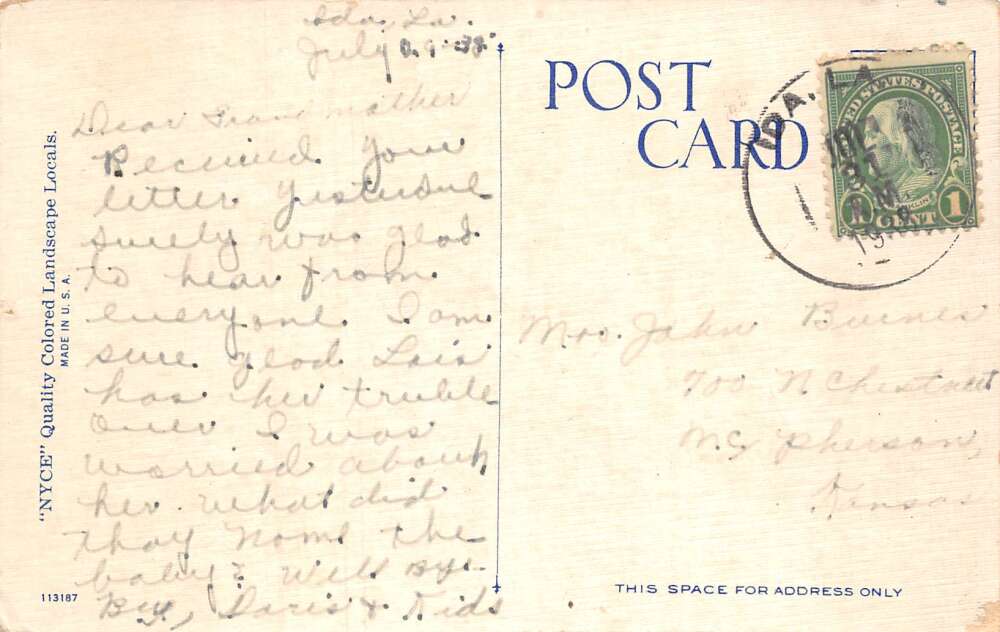 Ida, La.
July
Dear Grand mother
Received your
letter yesterday
surely was glad
to hear from
everyone. I am
sure glad Lois
has her truble
over I was
worried about
her. what did
thay name the
baby? Well Bye-
Bye, Doris & Kids
"NYCE" Quality Colored Landscape Locals.
MADE IN U. S. A.
113187
POST
CARD
IDA, LA
UNITED STATES POSTAGE
1 CENT 1
Mrs. John Burnes
700 N Chestnut
McPherson,
Kansas
THIS SPACE FOR ADDRESS ONLY